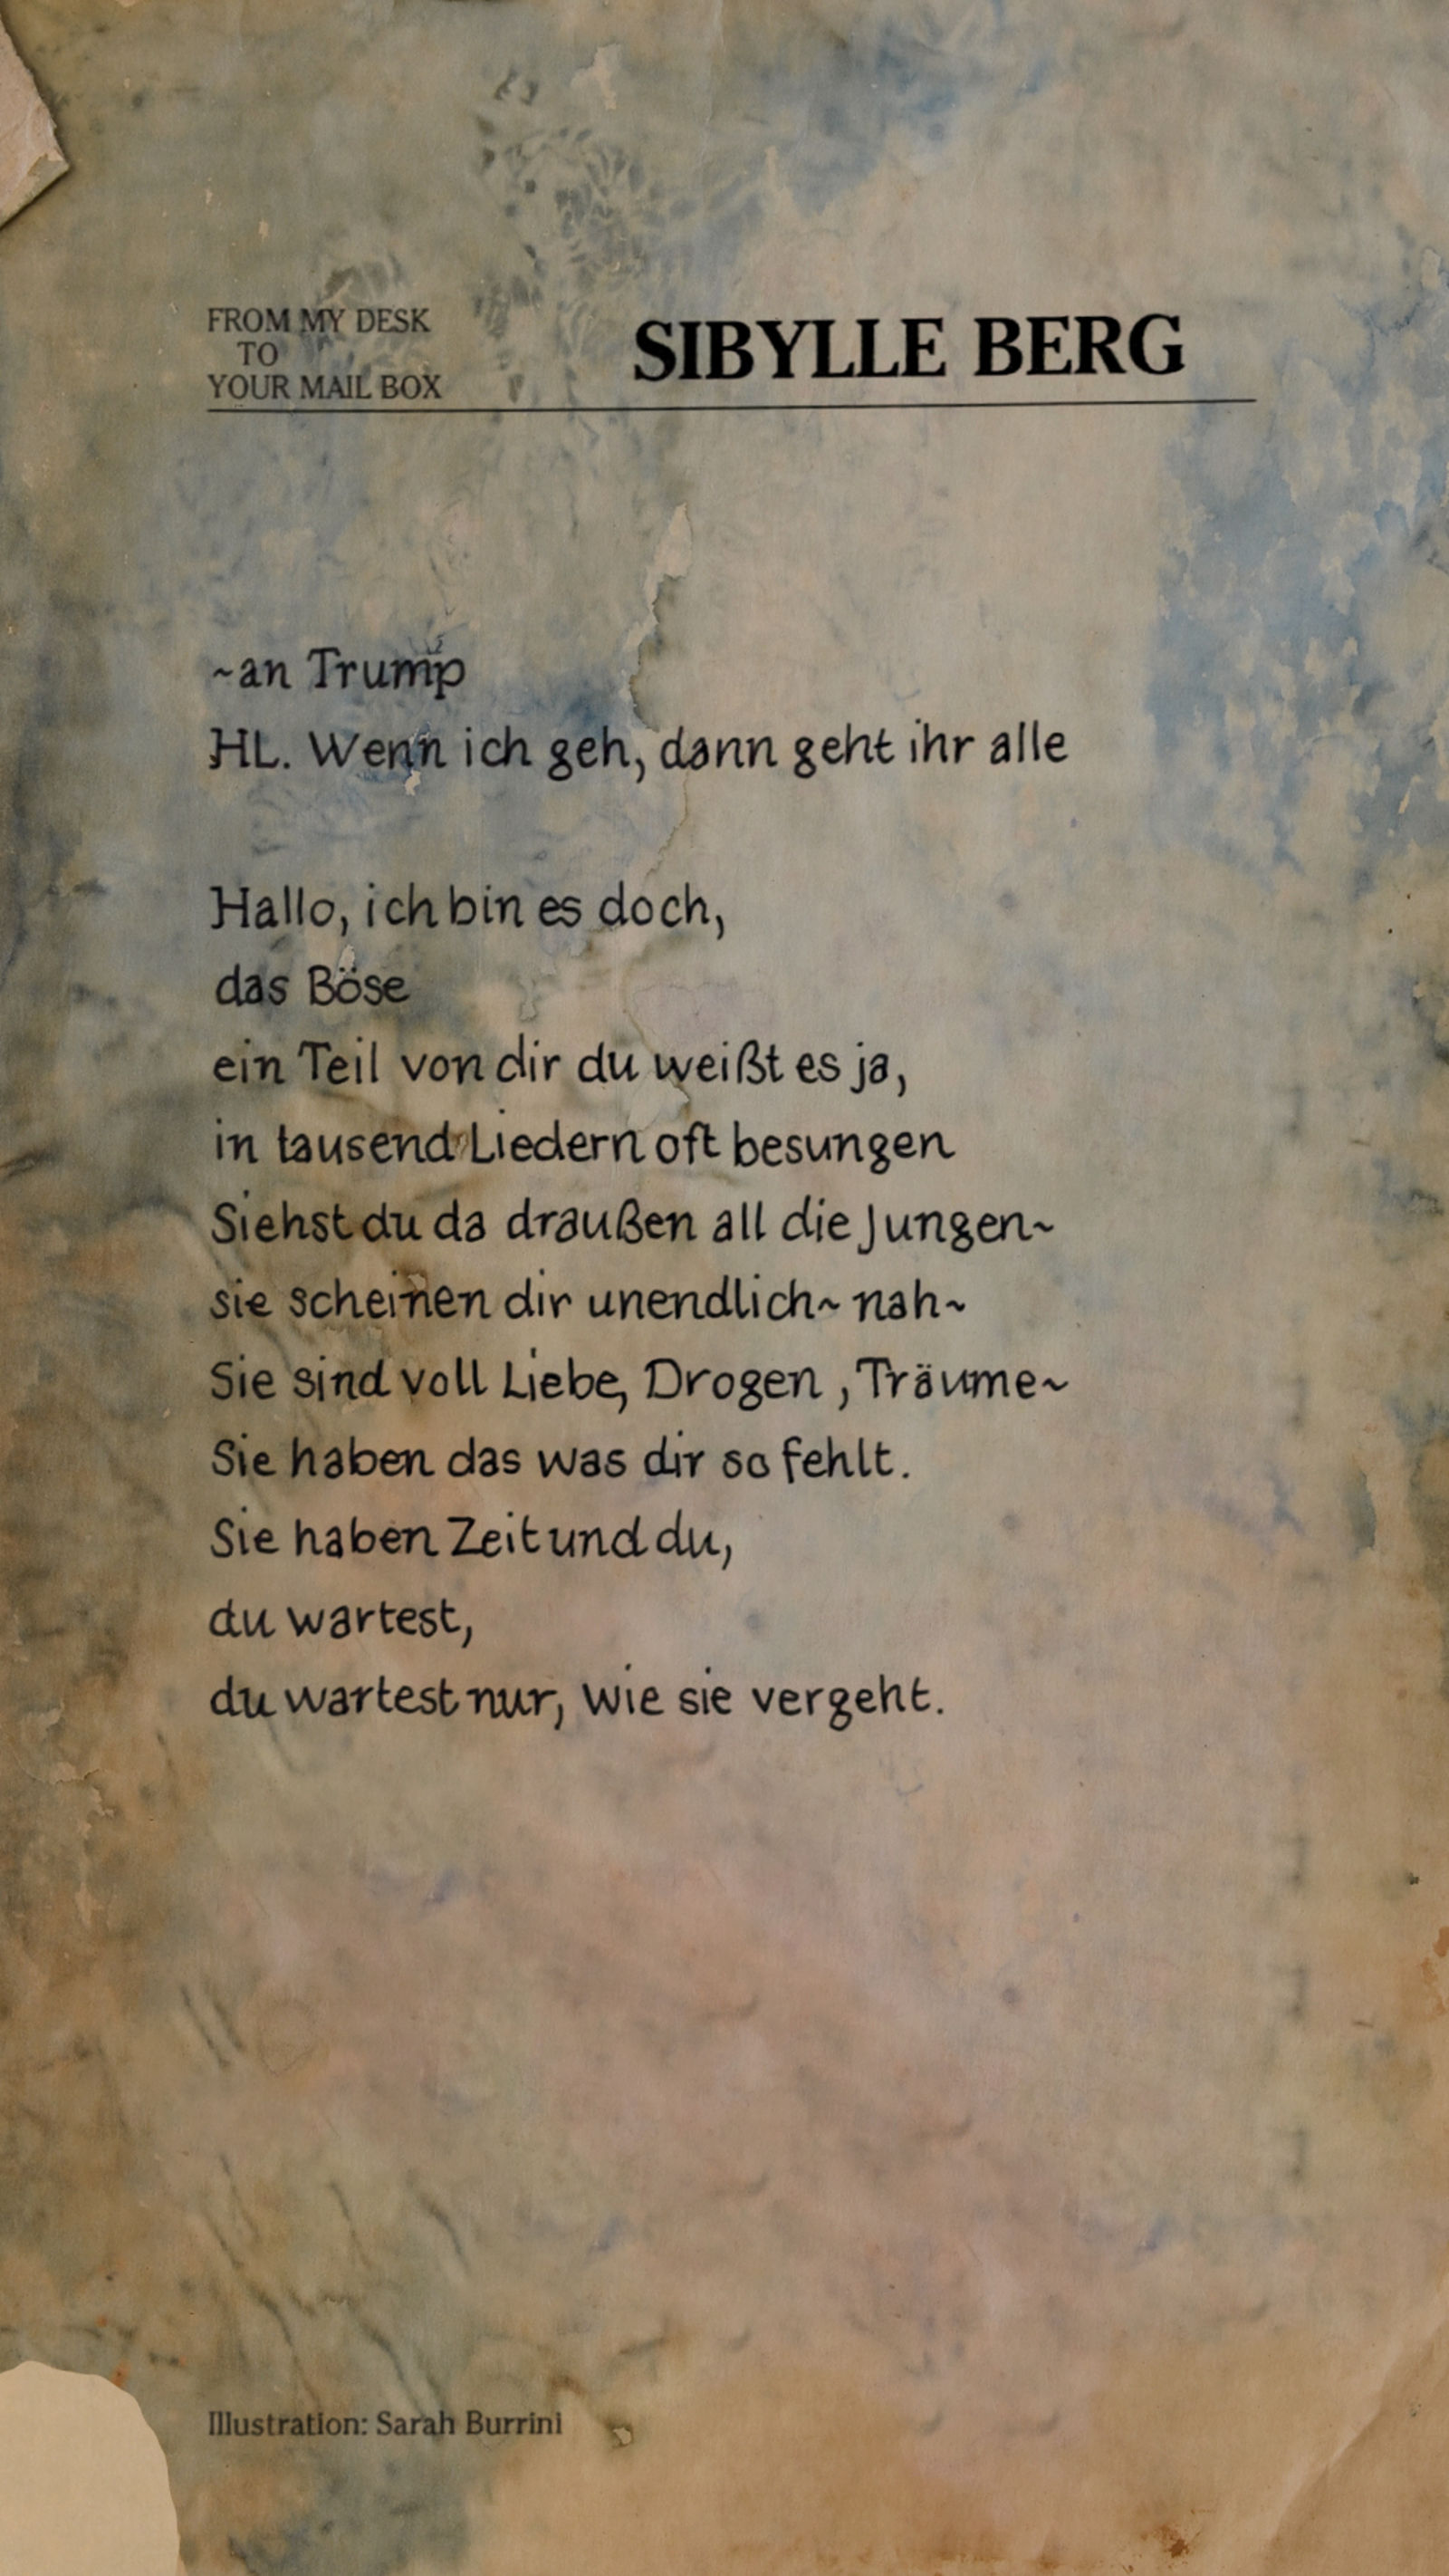 FROM MY DESK
TO
YOUR MAIL BOX
SIBYLLE BERG
~an Trump
HL. Wenn ich geh, dann geht ihr alle
Hallo, ich bin es doch,
das Böse
ein Teil von dir du weißt es ja,
in tausend Liedern oft besungen
Siehst du da draußen all die Jungen~
sie scheinen dir unendlich~ nah~
Sie sind voll Liebe, Drogen , Träume~
Sie haben das was dir so fehlt.
Sie haben Zeit und du,
du wartest,
du wartest nur, wie sie vergeht.
Illustration: Sarah Burrini